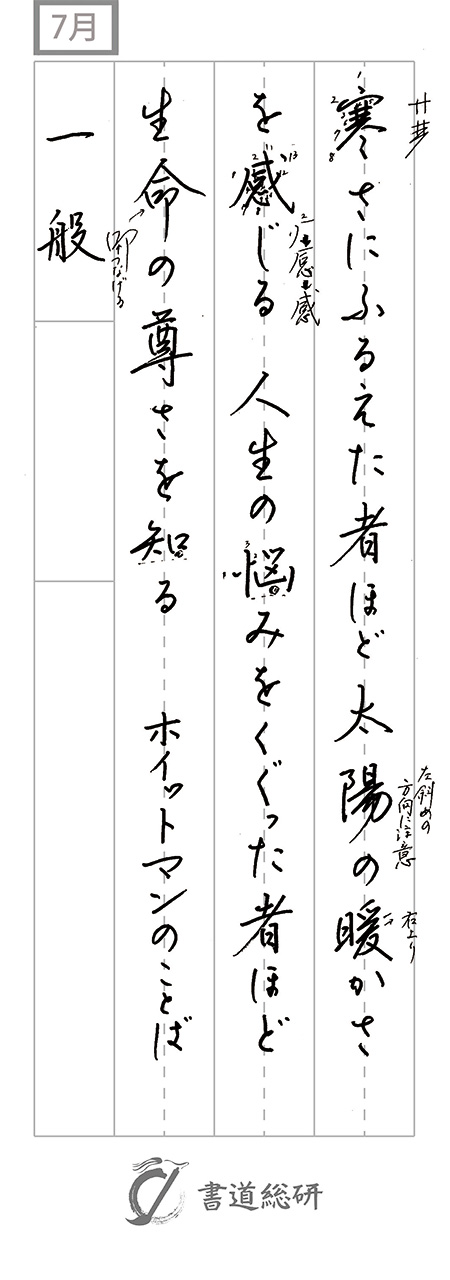 7月
寒さにふるえた者ほど太陽の暖かさ
を感じる 人生の悩みをくぐった者ほど
生命の尊さを知る ホイットマンのことば
一般
左斜めの
方向に注意
右上り
つなげる
書道総研